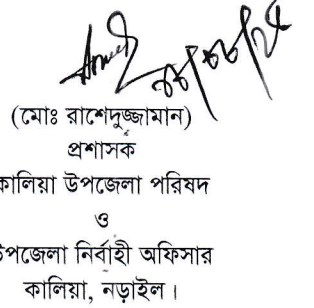 (মোঃ রাশেদুজ্জামান)
প্রশাসক
কালিয়া উপজেলা পরিষদ
ও
উপজেলা নির্বাহী অফিসার
কালিয়া, নড়াইল।